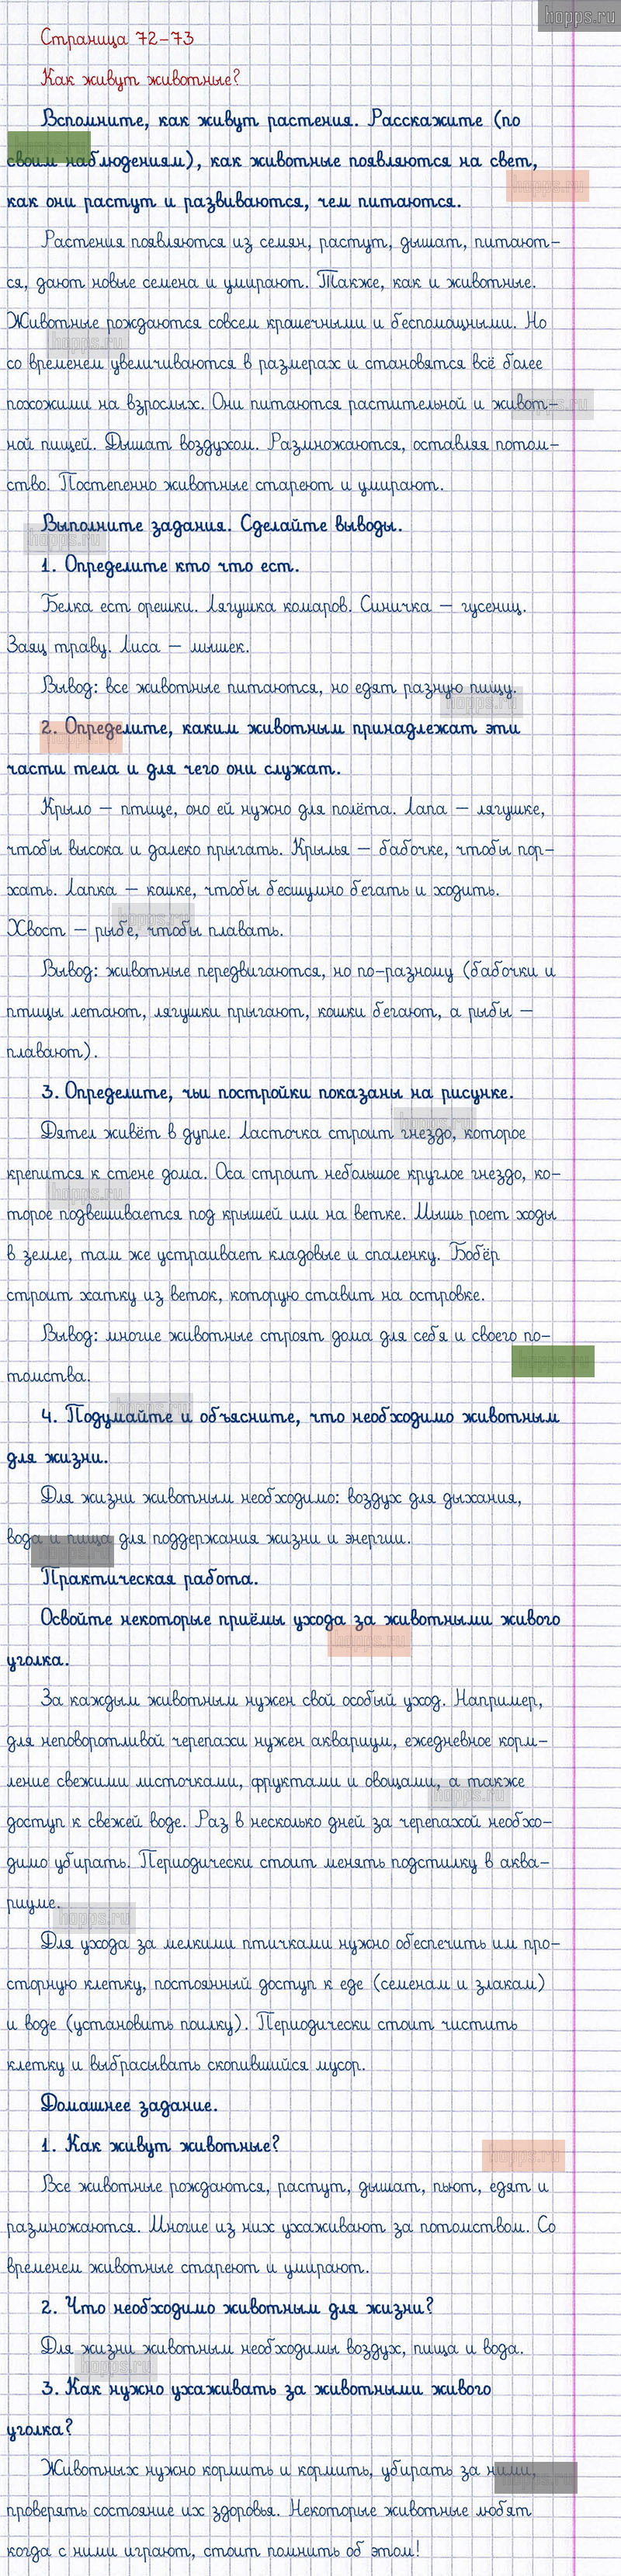 hopps.ru
Страница 72-73
Как живут животные?
Вспомните, как живут растения. Расскажите (по
своим наблюдениям), как животные появляются на свет,
как они растут и развиваются, чем питаются.
Растения появляются из семян, растут, дышат, питают-
ся, дают новые семена и умирают. Также, как и животные.
Животные рождаются совсем крошечными и беспомощными. Но
со временем увеличиваются в размерах и становятся всё более
похожими на взрослых. Они питаются растительной и живот-
ной пищей. Дышат воздухом. Размножаются, оставляя потом-
ство. Постепенно животные стареют и умирают.
Выполните задания. Сделайте выводы.
1. Определите кто что ест.
Белка ест орешки. Лягушка комаров. Синичка – гусениц.
Заяц траву. Лиса – мышек.
Вывод: все животные питаются, но едят разную пищу.
2. Определите, каким животным принадлежат эти
части тела и для чего они служат.
Крыло – птице, оно ей нужно для полёта. Лапа – лягушке,
чтобы высока и далеко прыгать. Крылья – бабочке, чтобы пор-
хать. Лапка – кошке, чтобы бесшумно бегать и ходить.
Хвост – рыбе, чтобы плавать.
Вывод: животные передвигаются, но по-разному (бабочки и
птицы летают, лягушки прыгают, кошки бегают, а рыбы –
плавают).
3. Определите, чьи постройки показаны на рисунке.
Дятел живёт в дупле. Ласточка строит гнездо, которое
крепится к стене дома. Оса строит небольшое круглое гнездо, ко-
торое подвешивается под крышей или на ветке. Мышь роет ходы
в земле, там же устраивает кладовые и спаленку. Бобёр
строит хатку из веток, которую ставит на островке.
Вывод: многие животные строят дома для себя и своего по-
томства.
4. Подумайте и объясните, что необходимо животным
для жизни.
Для жизни животным необходимо: воздух для дыхания,
вода и пища для поддержания жизни и энергии.
Практическая работа.
Освойте некоторые приёмы ухода за животными живого
уголка.
За каждым животным нужен свой особый уход. Например,
для неповоротливой черепахи нужен аквариум, ежедневное корм-
ление свежими листочками, фруктами и овощами, а также
доступ к свежей воде. Раз в несколько дней за черепахой необхо-
димо убирать. Периодически стоит менять подстилку в аква-
риуме.
Для ухода за мелкими птичками нужно обеспечить им про-
сторную клетку, постоянный доступ к еде (семенам и злакам)
и воде (установить поилку). Периодически стоит чистить
клетку и выбрасывать скопившийся мусор.
Домашнее задание.
1. Как живут животные?
Все животные рождаются, растут, дышат, пьют, едят и
размножаются. Многие из них ухаживают за потомством. Со
временем животные стареют и умирают.
2. Что необходимо животным для жизни?
Для жизни животным необходимы воздух, пища и вода.
3. Как нужно ухаживать за животными живого
уголка?
Животных нужно кормить и кормить, убирать за ними,
проверять состояние их здоровья. Некоторые животные любят
когда с ними играют, стоит помнить об этом!